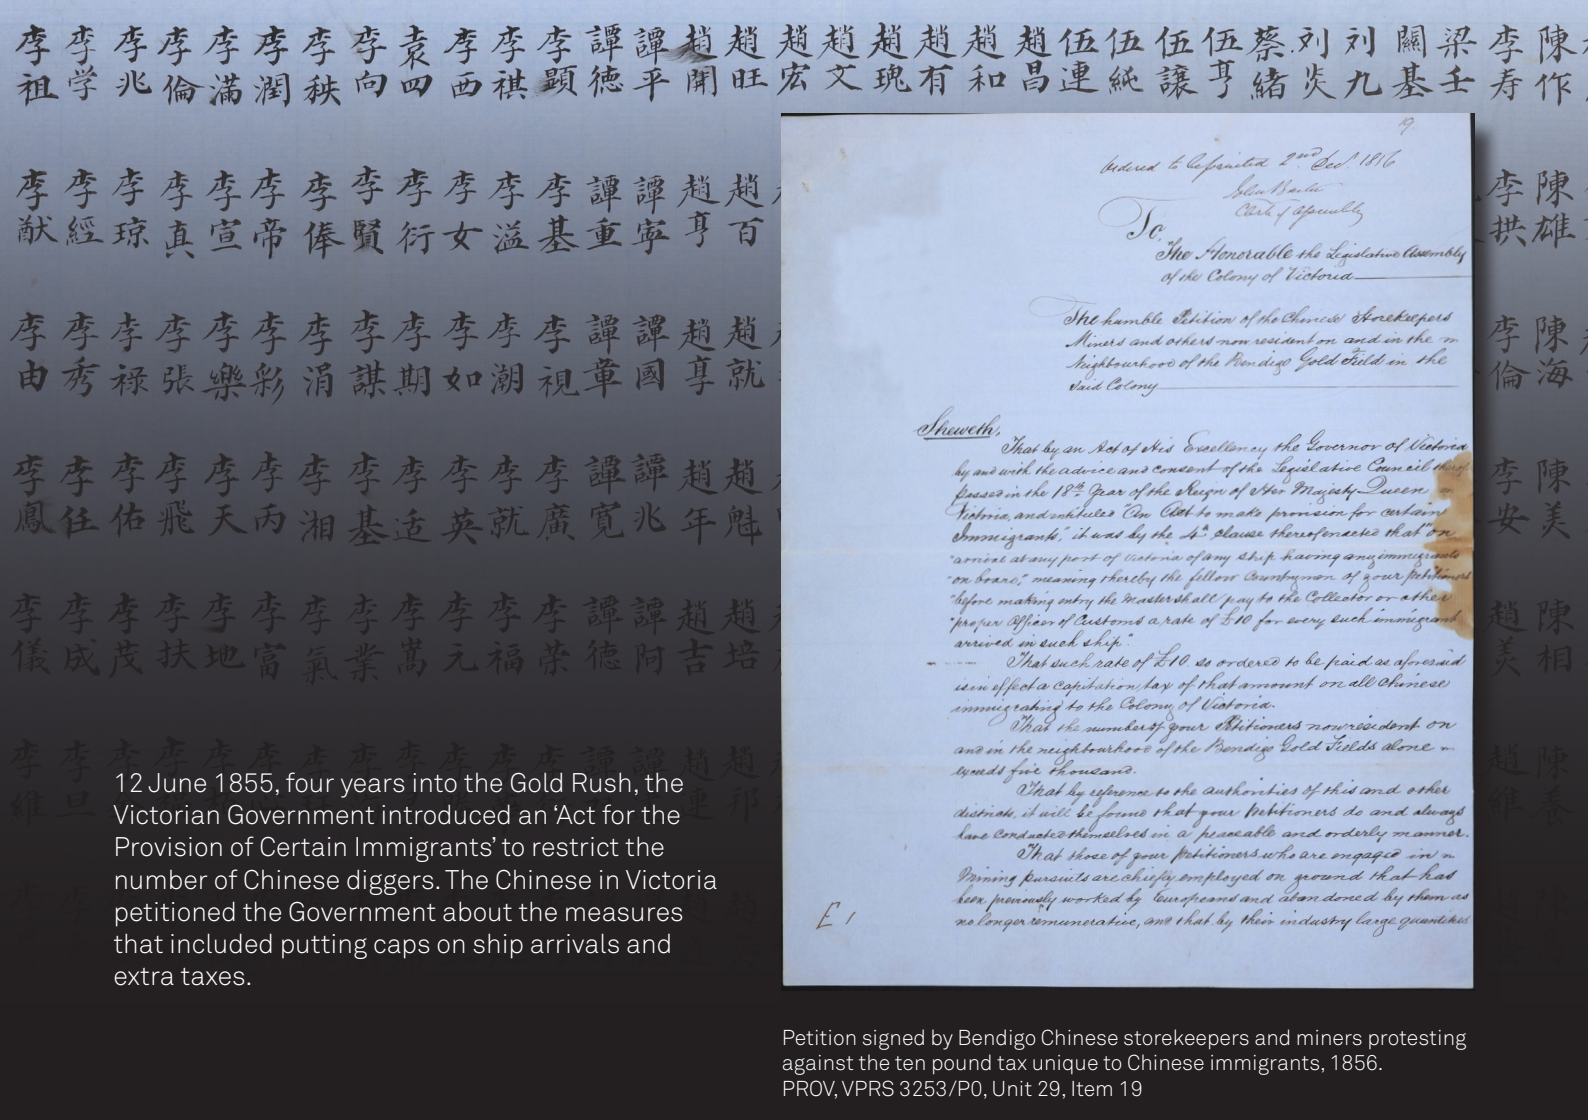 李 李 李 李 李 李 李 李 袁 李 李 李 譚 譚 趙 趙 趙 趙 趙 趙 趙 趙 伍 伍 伍 伍 蔡 刘 刘 關 梁 李 陳
祖 学 兆 倫 满 潤 秧 向 四 西 祺 顕 德 平 開 旺 宏 文 瑰 有 和 昌 連 純 譲 亨 緒 炎 九 基 壬 寿 作
19.
Ordered to be printed 2nd Decr. 1856
Clerk of Assembly
To
The Honorable the Legislative Assembly
of the Colony of Victoria
李 李 李 李 李 李 李 李 李 李 李 李 譚 譚 趙 趙 李 陳
猷 經 琼 真 宣 帝 俸 賢 衍 女 溢 基 重 寧 亨 百 拱 雄
The humble Petition of the Chinese Storekeepers
Miners and others now resident on and in the
Neighbourhood of the Bendigo Gold Field in the
said Colony
李 李 李 李 李 李 李 李 李 李 李 李 譚 譚 趙 趙 李 陳
由 秀 禄 張 樂 彩 涓 謀 期 如 潮 視 章 國 享 就 倫 海
Sheweth,
That by an Act of His Excellency the Governor of Victoria
by and with the advice and consent of the Legislative Council thereof
passed in the 18th Year of the Reign of Her Majesty Queen
Victoria, and intituled "An Act to make provision for certain
Immigrants," it was by the 4th clause thereof enacted that "on
"arrival at any port of Victoria of any ship having any immigrants
"on board," meaning thereby the fellow Countrymen of your Petitioners
"before making entry the Master shall pay to the Collector or other
"proper Officer of Customs a rate of £10 for every such immigrant
arrived in such ship".
李 李 李 李 李 李 李 李 李 李 李 李 譚 譚 趙 趙 李 陳
鳳 任 佑 飛 天 丙 湘 基 适 英 就 廣 寛 兆 年 魁 安 美
李 李 李 李 李 李 李 李 李 李 李 李 譚 譚 趙 趙 趙 陳
儀 成 茂 扶 地 富 氣 業 嵩 元 福 荣 德 阿 吉 培 美 相
That such rate of £10 so ordered to be paid as aforesaid
is in effect a capitation tax of that amount on all Chinese
immigrating to the Colony of Victoria.
That the number of your Petitioners now resident on
and in the neighbourhood of the Bendigo Gold Fields alone
exceeds five thousand.
That by reference to the authorities of this and other
districts, it will be found that your Petitioners do and always
have conducted themselves in a peaceable and orderly manner.
That those of your Petitioners who are engaged in
Mining pursuits are chiefly employed on ground that has
been previously worked by Europeans and abandoned by them as
no longer remunerative, and that by their industry large quantities
E 1
12 June 1855, four years into the Gold Rush, the
Victorian Government introduced an ‘Act for the
Provision of Certain Immigrants’ to restrict the
number of Chinese diggers. The Chinese in Victoria
petitioned the Government about the measures
that included putting caps on ship arrivals and
extra taxes.
Petition signed by Bendigo Chinese storekeepers and miners protesting
against the ten pound tax unique to Chinese immigrants, 1856.
PROV, VPRS 3253/P0, Unit 29, Item 19